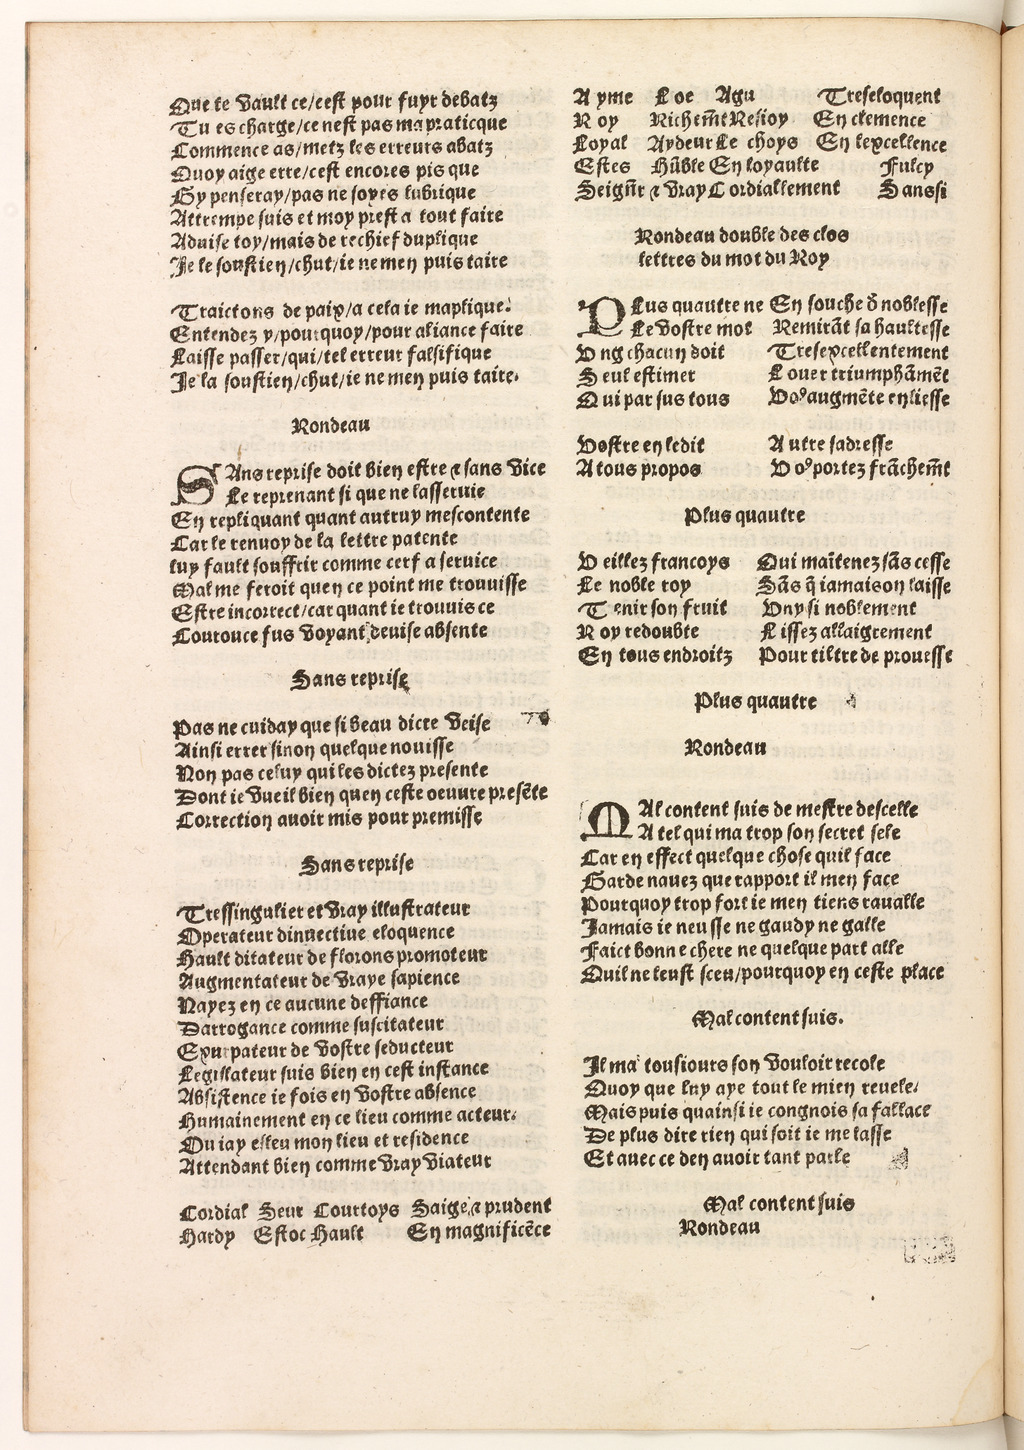 Que te vault ce/cest pour fuyr debatz
Tu es charge/ce nest pas ma praticque
Commence as/metz les erreurs abatz
Quoy aige erre/cest encores pis que
Gy penseray/pas ne soyes lubrique
Attrempe suis et moy prest a tout faire
Aduise toy/mais de rechief duplique
Je le soustien/chut/ie ne men puis taire
Traictons de paix/a cela ie maplique.
Entendez y/pourquoy/pour aliance faire
Laisse passer/qui/tel erreur falsifique
Je la soustien/chut/ie ne men puis taire.
Rondeau
SAns reprise doit bien estre & sans vice
Le reprenant si que ne lasseruie
En repliquant quant autruy mescontente
Car le renuoy de la lettre patente
luy fault souffrir comme cerf a seruice
Mal me feroit quen ce point me trouuisse
Estre incorrect/car quant ie trouuis ce
Coutouce fus voyant deuise absente
Sans reprise
Pas ne cuiday que si beau dicte veise
Ainsi errer sinon quelque nouisse
Non pas celuy qui les dictez presente
Dont ie vueil bien quen ceste oeuure presẽte
Correction auoir mis pour premisse
Sans reprise
Tressingulier et vray illustrateur
Operateur dinuectiue eloquence
Hault ditateur de florons promoteur
Augmentateur de vraye sapience
Nayez en ce aucune deffiance
Darrogance comme suscitateur
Expurpateur de vostre seducteur
Legislateur suis bien en cest instance
Absistence ie fois en vostre absence
Humainement en ce lieu comme acteur.
Ou iay esleu mon lieu et residence
Attendant bien comme vray viateur
Cordial Seur Courtoys Saige & prudent
Hardy Estoc Hault En magnificẽce
Ayme Loe Agu Treseloquent
Roy Richem̃t Resioy En clemence
Loyal Aydeur Le choys En lexcellence
Estes Hũble En loyaulte Fulcy
Seign̄r & vray Cordiallement Sanssi
Rondeau double des clos
lettres du mot du Roy
PLus quautre ne En souche d̃ noblesse
Le vostre mot Remirãt sa haultesse
Ung chacun doit Tresexcellentement
Seul estimer Louer triumphãmẽt
Qui par sus tous Voꝰ augmẽte en liesse
Vostre en ledit Autre sadresse
A tous propos Voꝰ portez frãchem̃t
Plus quautre
Veillez francoys Qui maĩtenez sãs cesse
Le noble roy Sãs q̃ iamais on laisse
Tenir son fruit Vny si noblement
Roy redoubte Lissez allaigrement
En tous endroitz Pour tiltre de prouesse
Plus quautre
Rondeau
MAl content suis de mestre descelle
A tel qui ma trop son secret sele
Car en effect quelque chose quil face
Garde nauez que rapport il men face
Pourquoy trop fort ie men tiens raualle
Jamais ie neusse ne gaudy ne galle
Faict bonne chere ne quelque part alle
Quil ne leust sceu/pourquoy en ceste place
Mal content suis.
Il ma tousiours son vouloir recole
Quoy que luy aye tout le mien reuele/
Mais puis quainsi ie congnois sa fallace
De plus dire rien qui soit ie me lasse
Et auec ce den auoir tant parle
Mal content suis
Rondeau